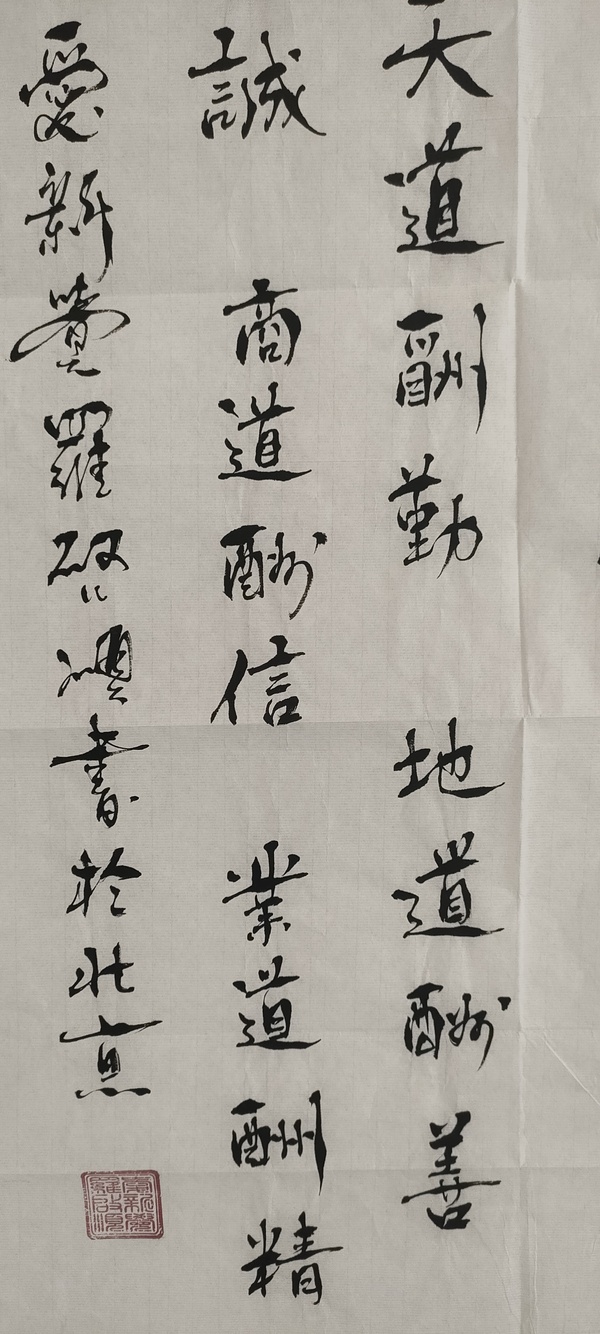 天道酬勤 地道酬善
誠 商道酬信 業道酬精
愛新覺羅啟 書於北京
愛新覺
羅啟